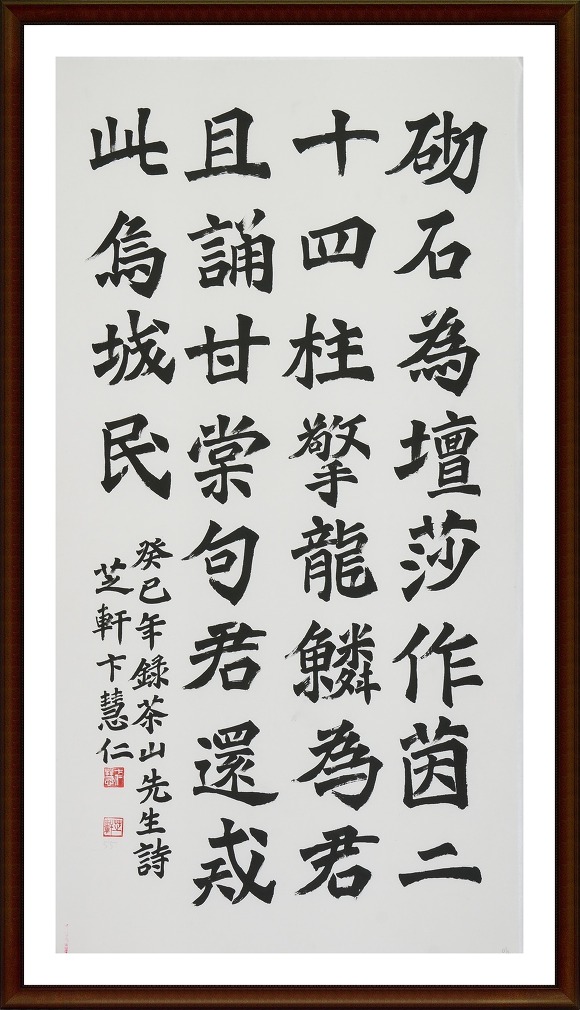 砌石為壇莎作茵二
十四柱擎龍鱗為君
且誦甘棠句君還戒
此烏城民
癸巳年録茶山先生詩
芝軒卞慧仁